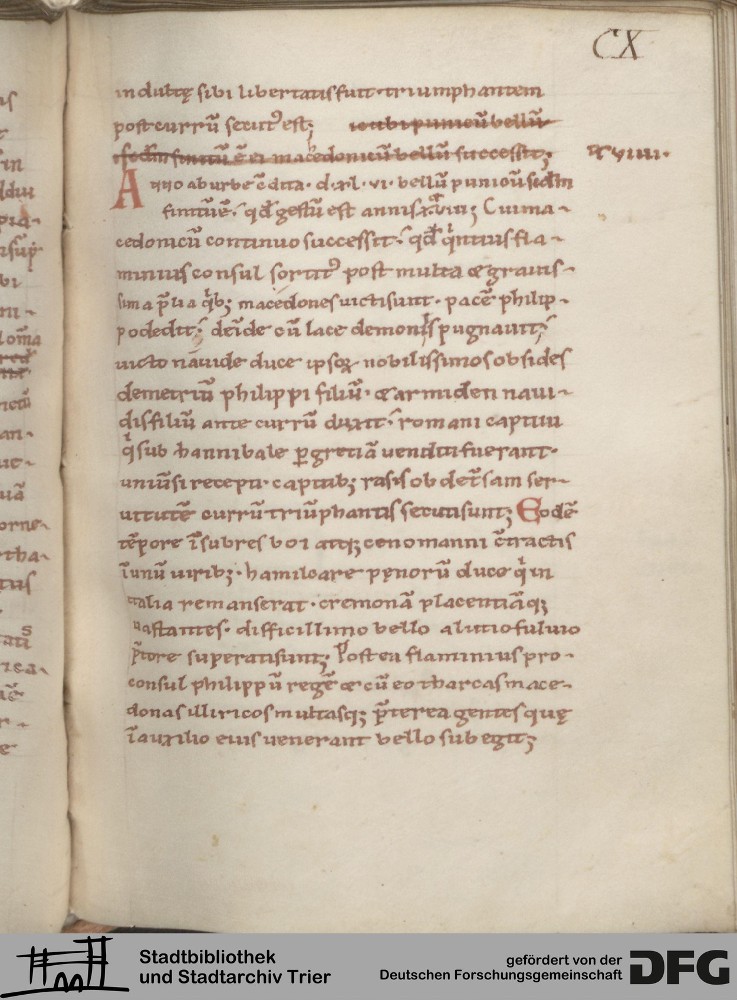 CX
indultę sibi libertatis fuit · triumphantem
post currū secut᷒ est;
macedonicū bellū successit; · xviiii ·
Anno ab urbe c̄dita · d · xl · vi · bellū punicū scdm
finitū ē · qđ gestū est annis xviii; Cui ma-
cedonicū continuo successit · qđ qͥntius fla-
minius consul sortit᷒ post multa & grauis-
sima p̄lia qͥb; macedones uicti sunt · pacē philip-
po dedit; deīde cū lacedemoniis pugnauit;
uicto nauide duce ipsoꝝ nobilissimos obsides
demetriū philippi filiū · & armiden naui-
dis filiū ante currū duxit · romani captiui
qͥ sub hannibale ꝑ gretiā uenditi fuerant ·
uniūsi recepti · capitib; rasis ob det̄sam ser-
uitutē currū triūphantis secuti sunt; Eodē
tēpore īsubres boi atq; cenomanni c̄tractis
ī unū uirib; · hamilcare penorū duce qͥ in
italia remanserat · cremonā placentiāq;
uastantes · difficillimo bello a lutio fuluio
p̄tore superati sunt; Postea flaminius pro-
consul philippū regē & cū eo tharcas mace-
donas illiricos multasq; p̄terea gentes quę
ī auxilio eius uenerant bello subegit;
Stadtbibliothek
und Stadtarchiv Trier
gefördert von der
Deutschen Forschungsgemeinschaft
DFG